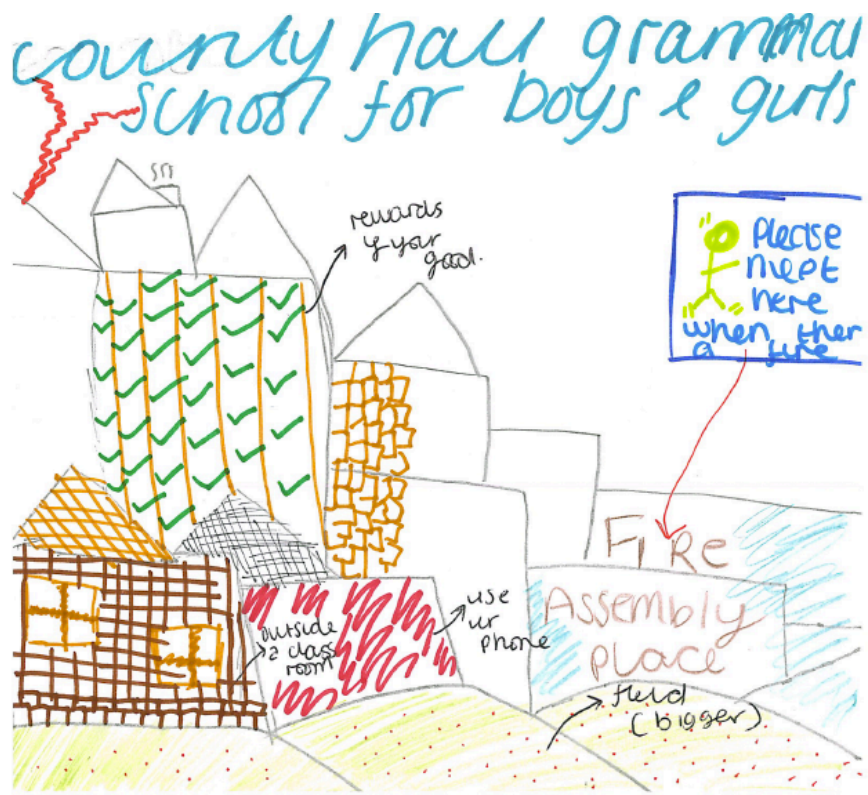 county hall grammar
school for boys & girls
rewards
if your
good.
please
meet
here
when ther
a fire
FiRe
Assembly
place
use
ur
phone
outside
2 class
room
field
(bigger)